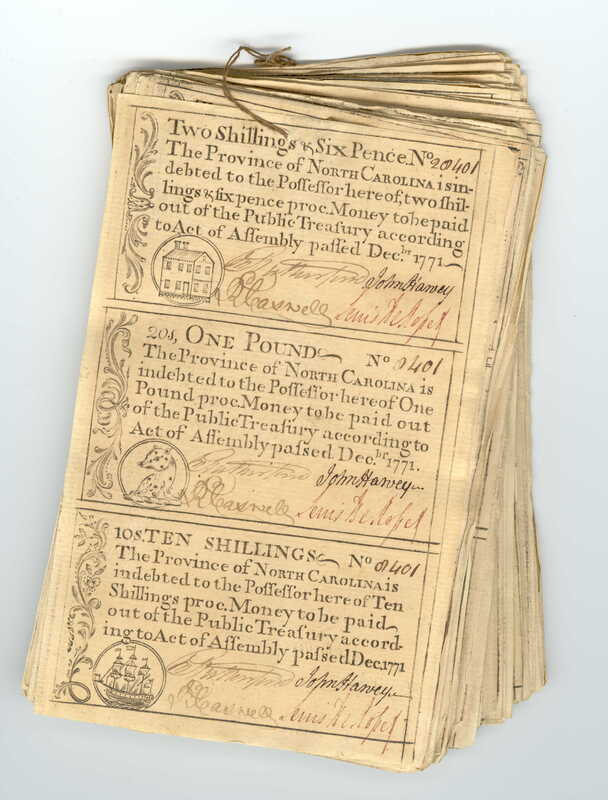 Two Shillings & Six Pence. No. 28401
The Province of NORTH CAROLINA is in-
debted to the Poſſeſſor here of, two ſhil-
lings & ſix pence proc. Money to be paid
out of the Public Treaſury according
to Act of Aſſembly paſſed Dec.br 1771
John Harvey
R Caswell Lewis De Rosset
20s, ONE POUND No 8401
The Province of NORTH CAROLINA is
indebted to the Poſſeſſor here of One
Pound proc. Money to be paid out
of the Public Treaſury according to
Act of Aſſembly paſſed Dec.br 1771.
John Harvey
R Caswell Lewis De Rosset
10s. TEN SHILLINGS No 8401
The Province of NORTH CAROLINA is
indebted to the Poſſeſſor here of Ten
Shillings proc. Money to be paid
out of the Public Treaſury accord-
ing to Act of Aſſembly paſſed Dec. 1771
John Harvey
R Caswell Lewis De Rosset